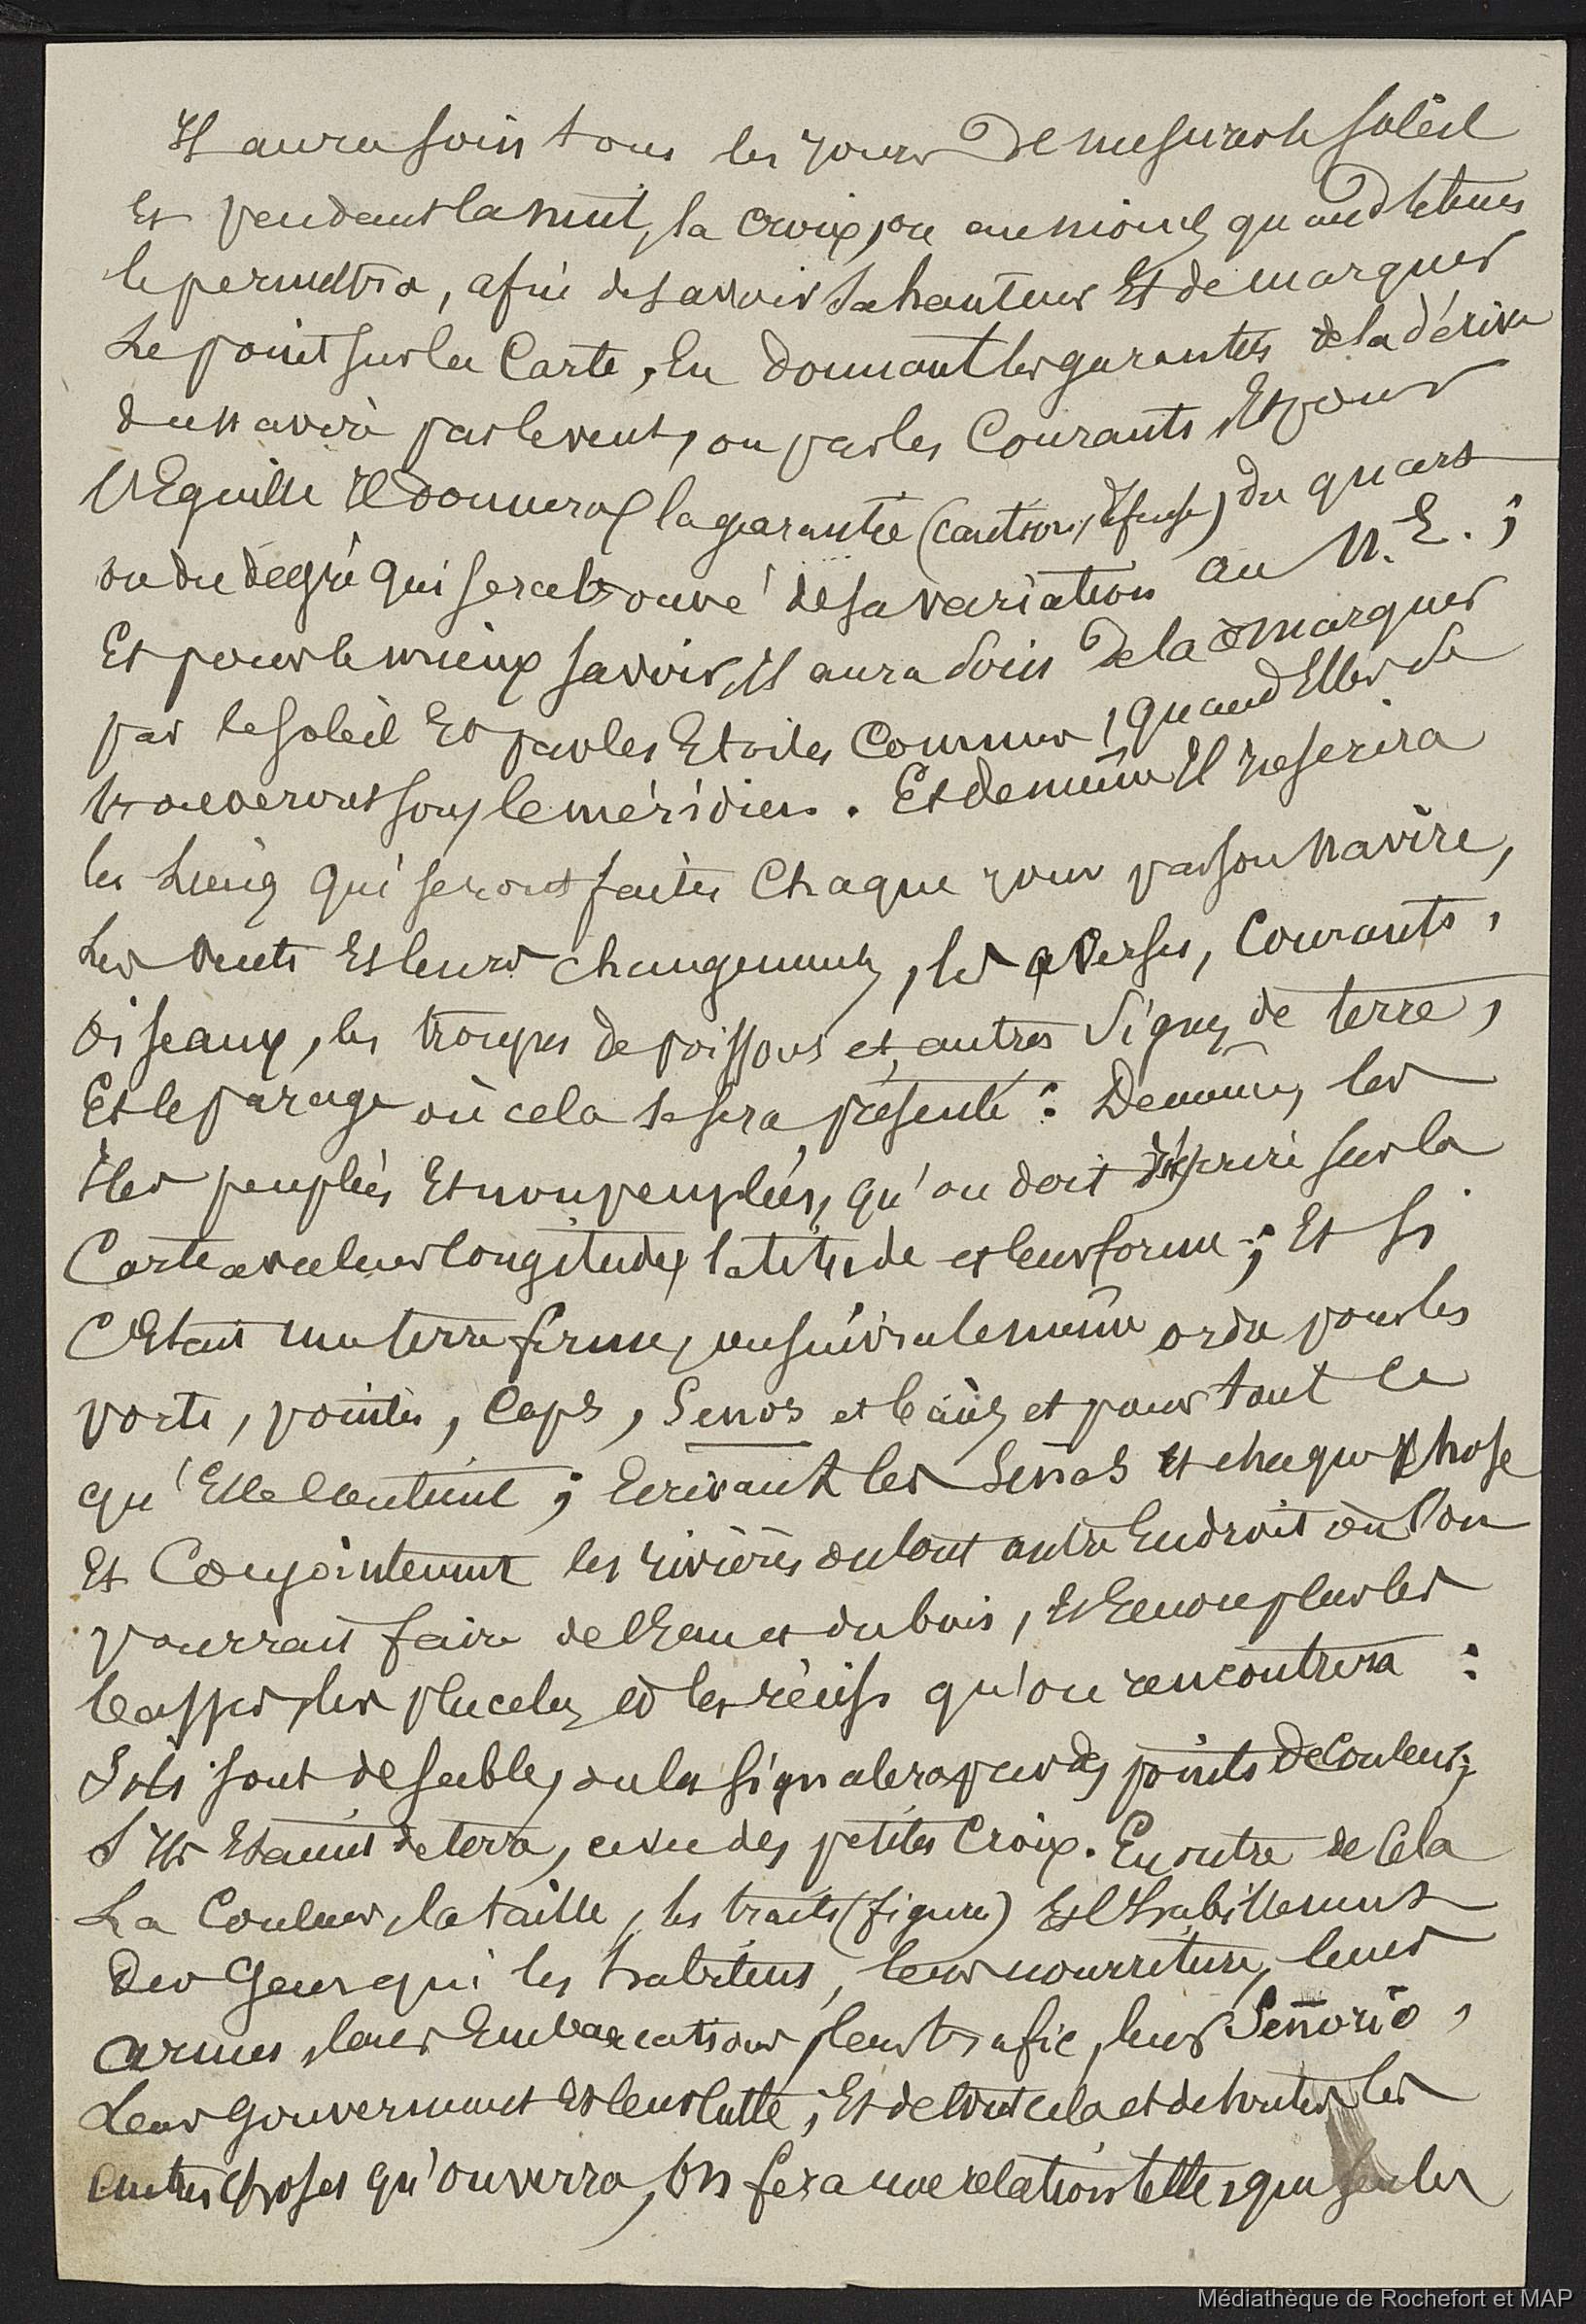 Il aura soin tous les jours De mesurer le soleil
Et pendant la nuit, la croix, ou au moins quand le tems
le permettra, afin de savoir sa hauteur Et de marquer
Le point sur la Carte, En donnant les garanties de la dérive
du navire par le vent, ou par les Courants, Et pour
l'Eguille Il donnera la garantie (caution, défense) du quart
ou du degré qui sera trouvé de sa variation au N.E. ;
Et pour le mieux savoir, Il aura soin De la marquer
par le soleil Et par les Etoiles Connues, quand Elles se
trouveront sous le méridien. Et de même Il
les Lieues qui seront faites Chaque jour par son Navire,
Les Vents Et leurs changements, les averses, Courants,
oiseaux, les troupes de poissons et autres Signes de terre,
Et le parage où cela se sera présenté : De même, les
Iles peuplées Et non peuplées, qu'on doit sur la
Carte avec leur longitude, latitude et leur forme ; Et si
C'Etait une terre ferme, on suivra le même ordre pour les
ports, pointes, Caps, Senos et baies et pour tout ce
qu'Elle contient ; Ecrivant les Senos et chaque chose
Et Conjointement les rivières ou tout autre Endroit où l'on
pourrait faire de l'Eau et du bois, Et Encore plus les
basses, les placeles et les récifs qu'on rencontrera :
S'ils sont de sable, on les signalera par des points de Couleur ;
S'Ils Etaient de terre, avec des petites Croix. En outre de Cela
La Couleur, la taille, les traits (figure) Et l'habillement
Des Gens qui les habitent, leur nourriture, leurs
armes, leurs Embarcations, leur trafic, leur Señorio,
Leur gouvernement Et leur lutte ; Et de tout cela et de toutes les
autres choses qu'on verra, On fera une relation telle, que